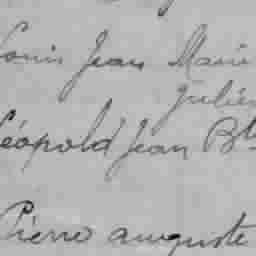 Louis Jean Marie
Julien
Léopold Jean Bte
Pierre auguste